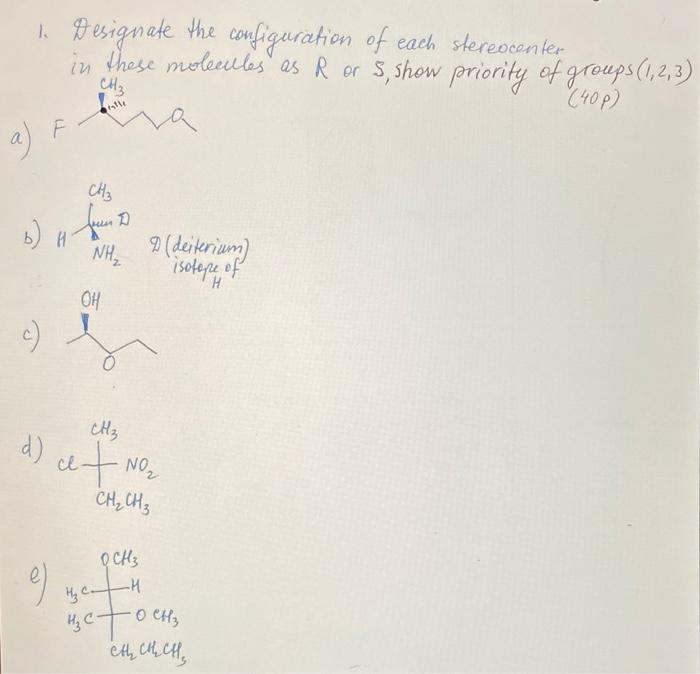 1. Designate the configuration of each stereocenter
in these molecules as R or S, show priority of groups (1,2,3)
(40p)
a)
CH3
F
O
b)
CH3
H
D
NH2
D (deiterium)
isotope of
H
c)
OH
O
d)
CH3
Cl
NO2
CH2CH3
e)
OCH3
H3C
H
H3C
OCH3
CH2CH2CH3